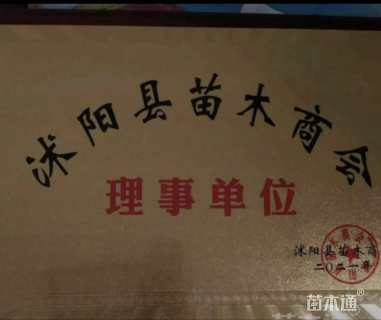 沭阳县苗木商会
理事单位
沭阳县苗木商
二〇二一年
苗木通®